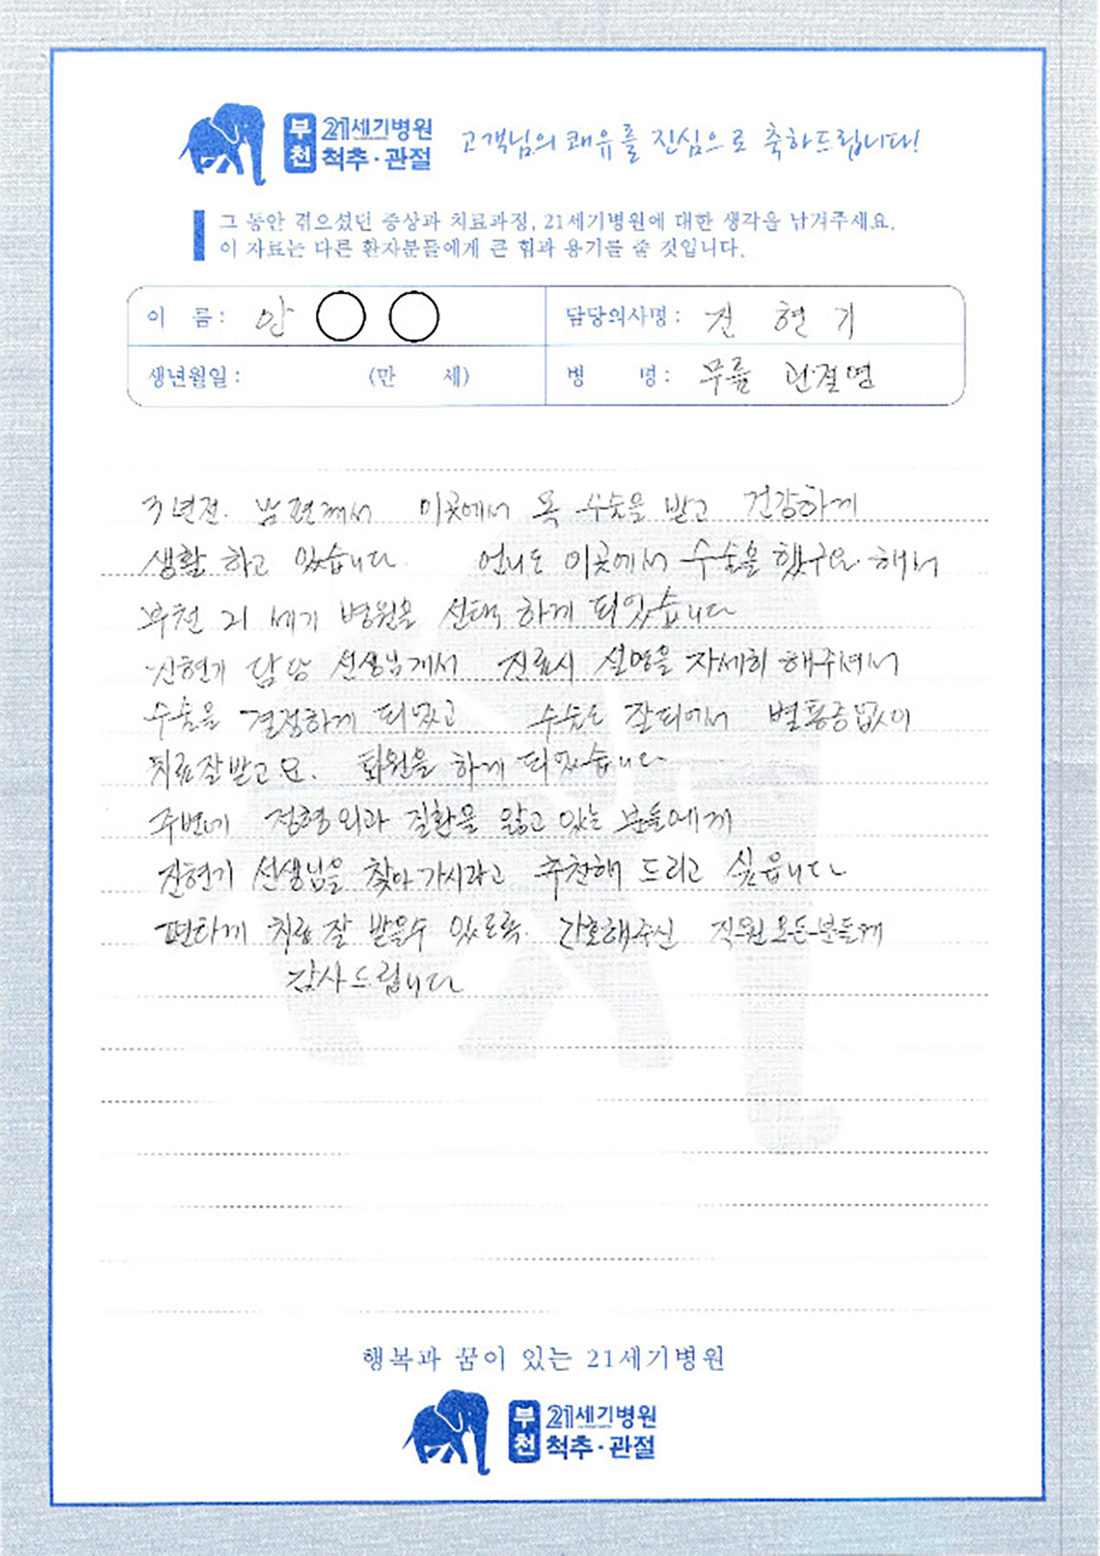 부천 21세기병원 척추·관절 고객님의 쾌유를 진심으로 축하드립니다!
그 동안 겪으셨던 증상과 치료과정, 21세기병원에 대한 생각을 남겨주세요.
이 자료는 다른 환자분들에게 큰 힘과 용기를 줄 것입니다.
이 름 : 안 담당의사명 : 진 현 기
생년월일 : (만 세) 병 명 : 무릎 관절염
3년전. 남편께서 이곳에서 목 수술을 받고 건강하게
생활 하고 있습니다. 언니도 이곳에서 수술을 했구요. 해서
부천 21 세기 병원을 선택 하게 되있습니다
진현기 담당 선생님게서 진료시 설명을 자세히 해주셔서
수술을 결정하게 되었고 수술도 잘되에서 별통증없이
치료잘받고요. 퇴원을 하게 되있습니다
주변에 정형외과 질환을 앓고 있는 분들에게
진현기 선생님을 찾아가시라고 추천해 드리고 싶읍니다
편하게 치료 잘 받을수 있도록. 간호해주신 직원모든분들게
감사드립니다
행복과 꿈이 있는 21세기병원
부천 21세기병원 척추·관절